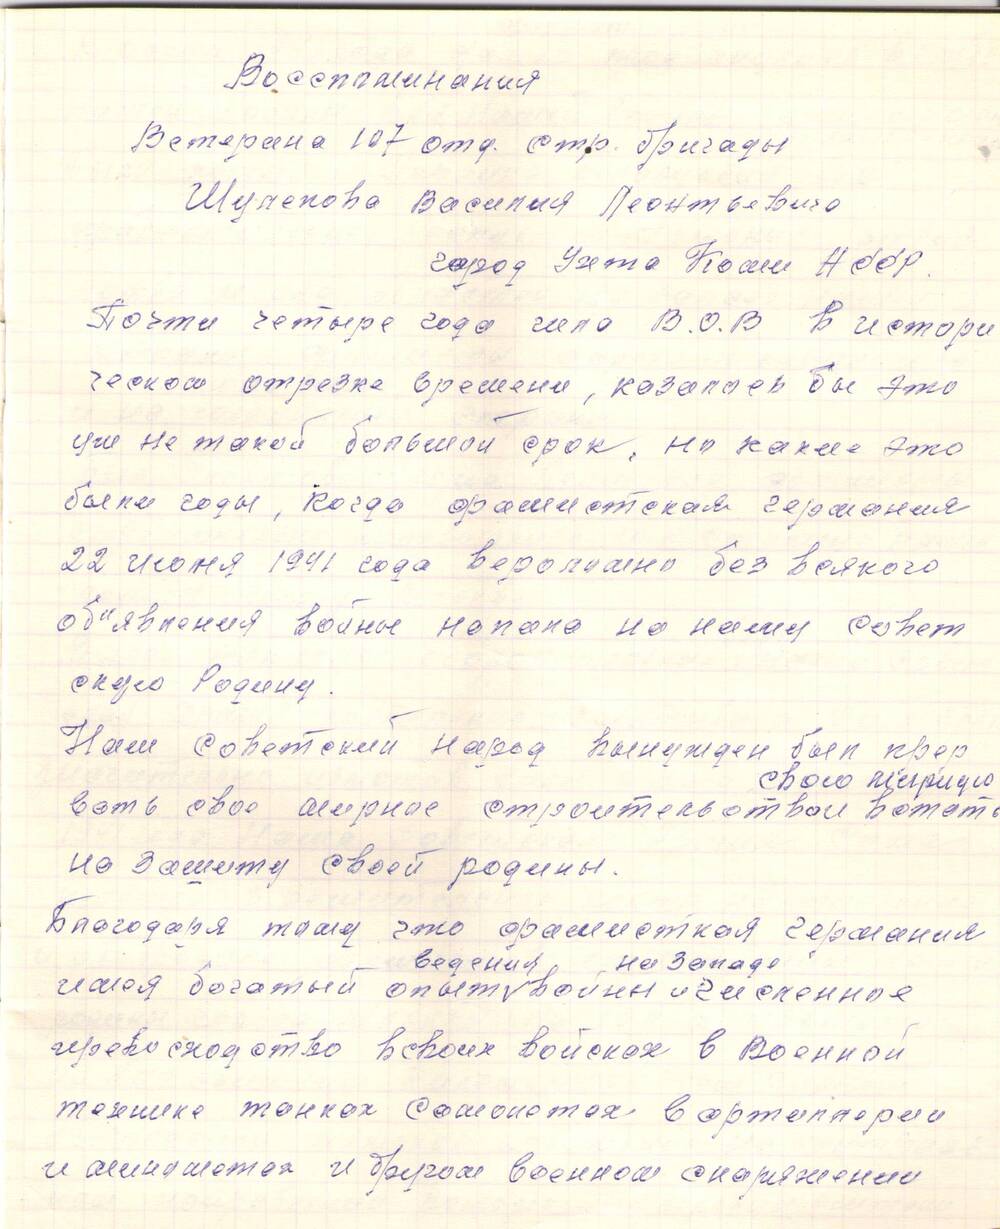 Воспоминания
Ветерана 107 отд. стр. бригады
Шулепова Василия Леонтьевича
город Ухта Коми АССР.
Почти четыре года шла В.О.В в истори
ческом отрезке времени, казалось бы это
уж не такой большой срок, но какие это
были годы, когда фашистская германия
22 июня 1941 года вероломно без всякого
об"явления войны напала на нашу совет
скую Родину.
Наш советский народ вынужден был прер
вать свое мирное строительство и встать
на защиту своей родины.
Благодаря тому что фашисткая германия
ведения на Западе
имея богатый опыт войны и численное
превосходство в своих войсках в Военной
технике танках самолетах в артиллерии
и минометах и другом военном снаряжении